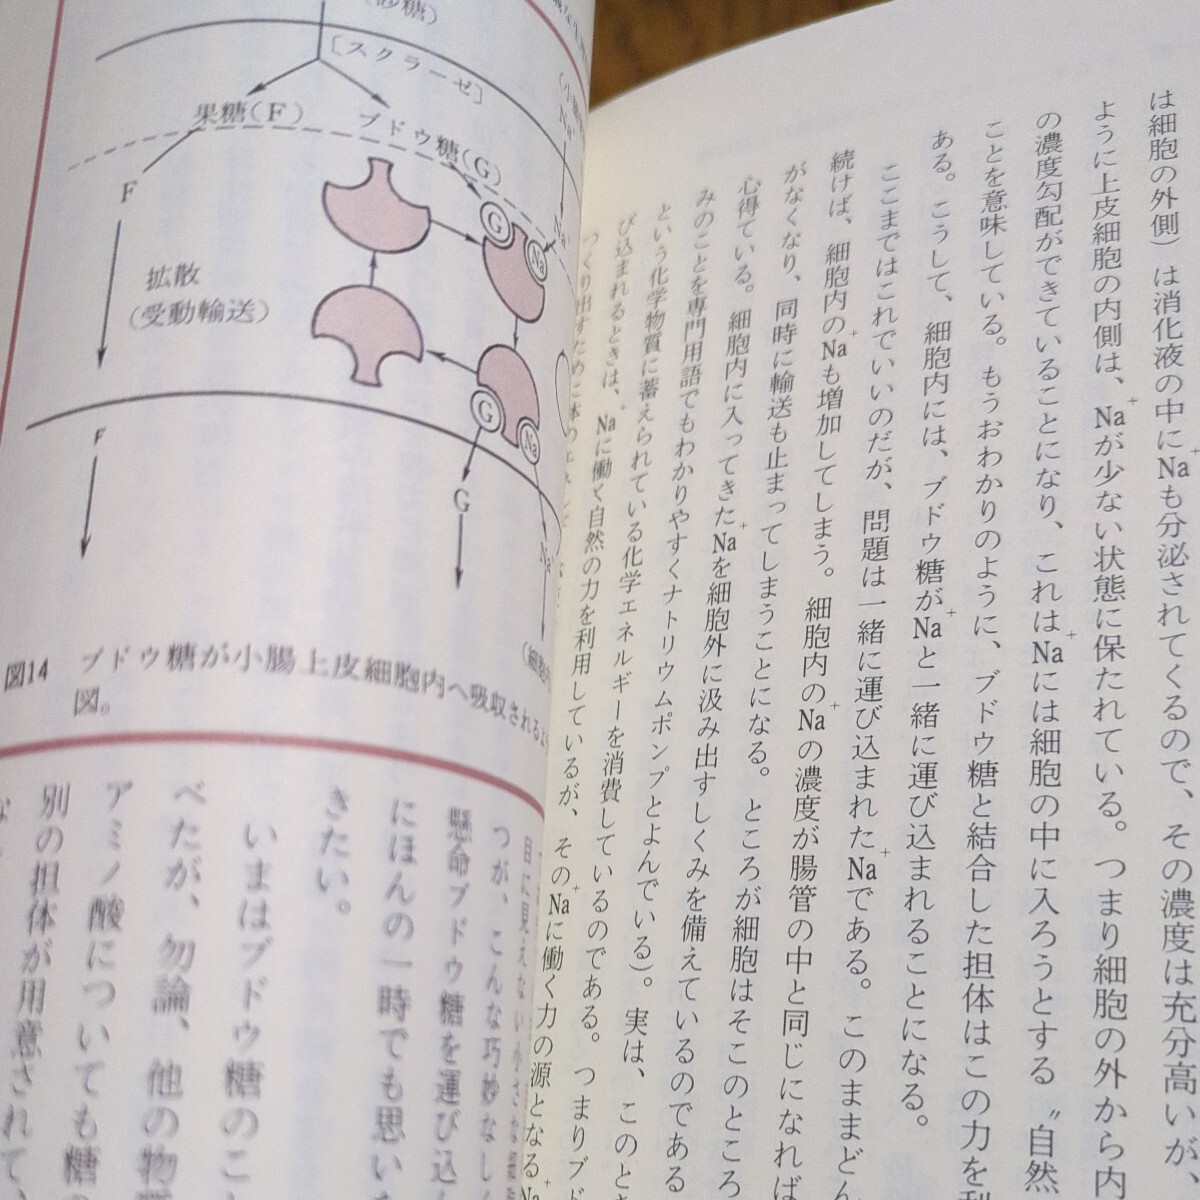 は細胞の外側）は消化液の中にNa+も分泌されてくるので、その濃度は充分高いが、
ように上皮細胞の内側は、Na+が少ない状態に保たれている。つまり細胞の外から内
の濃度勾配ができていることになり、これはNa+には細胞の中に入ろうとする〝自然
ことを意味している。もうおわかりのように、ブドウ糖と結合した担体はこの力を利
ある。こうして、細胞内には、ブドウ糖がNa+と一緒に運び込まれることになる。
ここまではこれでいいのだが、問題は一緒に運び込まれたNa+である。このままどん
続けば、細胞内のNa+も増加してしまう。細胞内のNa+の濃度が腸管の中と同じになれば
がなくなり、同時に輸送も止まってしまうことになる。ところが細胞はそこのところ
心得ている。細胞内に入ってきたNa+を細胞外に汲み出すしくみを備えているのである
みのことを専門用語でもわかりやすくナトリウムポンプとよんでいる）。実は、このとき
という化学物質に蓄えられている化学エネルギーを消費しているのである。つまりブド
び込まれるときは、Na+に働く自然の力を利用しているが、そのNa+に働く力の源となるNa+
つくり出すために体のエネ
（砂糖）
［スクラーゼ］
果糖（F）
ブドウ糖（G）
（小腸
Na+
F
G
Na
Na+
拡散
（受動輸送）
G
Na
F
G
Na+
（細胞
図14 ブドウ糖が小腸上皮細胞内へ吸収されるよ
図。
目に見えない小さな細
つが、こんな巧妙なしく
懸命ブドウ糖を運び込ん
にほんの一時でも思い
きたい。
いまはブドウ糖のこ
べたが、勿論、他の物
アミノ酸についても糖
別の担体が用意されて、